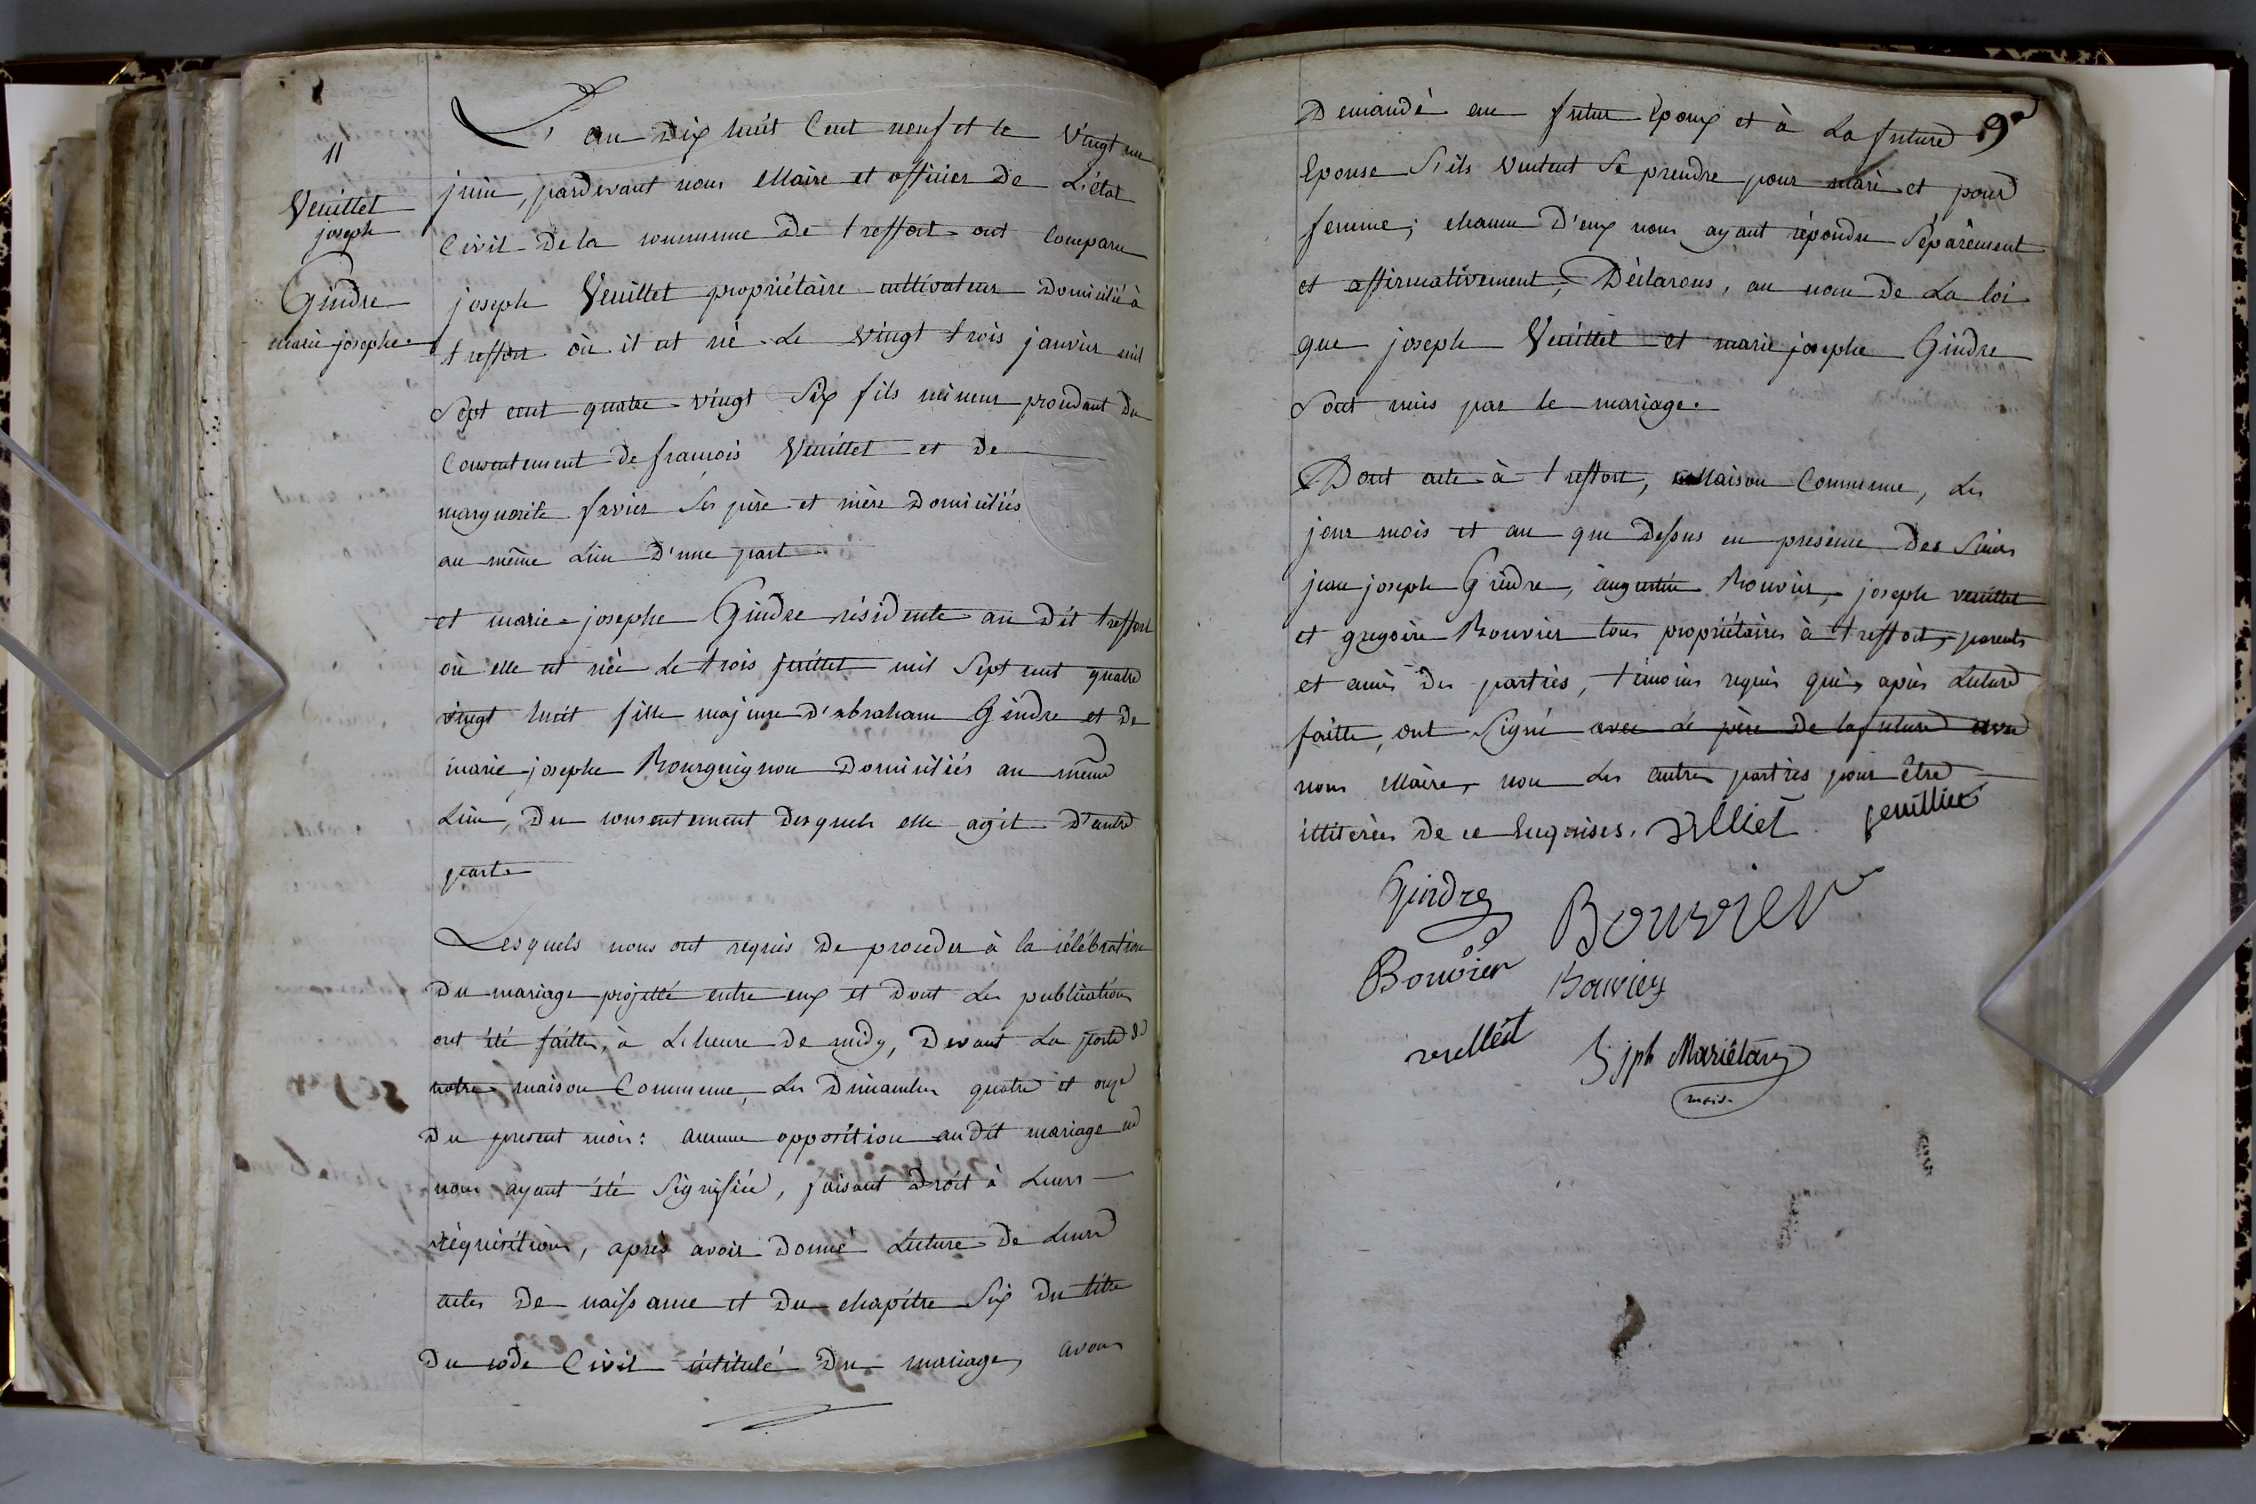 11
Veuillet
joseph
Gindre
marie josephe.
L'an Dix huit Cent neuf et le Vingt un
juin, pardevant nous Maire et officier De L'état
Civil De la commune De treffort ont Comparu
joseph Veuillet propriétaire cultivateur Domicilié à
treffort où il est né Le vingt trois janvier mil
Sept cent quatre vingt Six fils mineur procédant Du
Consentement De françois Veuillet et De
marguerite favier Ses père et mère Domiciliés
au même Lieu D'une part
et marie josephe Gindre résidente au Dit treffort
où elle est née Le trois juillet mil Sept cent quatre
vingt huit fille majeure D'abraham Gindre et De
marie josephe Bourguignon Domiciliés au même
Lieu, Du consentement Desquels elle agit D'autre
part
Lesquels nous ont requis De proceder à la célébration
Du mariage projetté entre eux et Dont Les publications
ont été faittes, à L'heure De midy, Devant La porte De
notre maison Commune, Les Dimanches quatre et onze
Du present mois: aucune opposition audit mariage ne
nous ayant été Signifiée, faisant Droit à Leurs
réquisitions, après avoir Donné Lecture De Leurs
actes De naissance et Du chapitre Six Du titre
Du code Civil intitulé Du mariage, avons
9
Demandé au futur Epoux et à La future
Epouse S'ils veulent Se prendre pour mari et pour
femme; chacun D'eux nous ayant répondu Séparément
et affirmativement, Déclarons, au nom De La loi
que joseph Veuillet et marie josephe Gindre
Sont unis par le mariage.
Dont acte à treffort, Maison Commune, Les
jour mois et an que Dessus en présence Des Sieurs
jean joseph Gindre, augustin Bouvier, joseph veuillet
et gregoire Bouvier tous propriétaires à treffort, parents
et amis Des parties, témoins requis qui, après Lecture
faitte, ont Signé avec Le père De la future avec
nous Maire, non Les autres parties pour être
illiterées De ce Enquises.
Gindre Bouvier
Bouvier Bouvier
jph Mariétan
maire